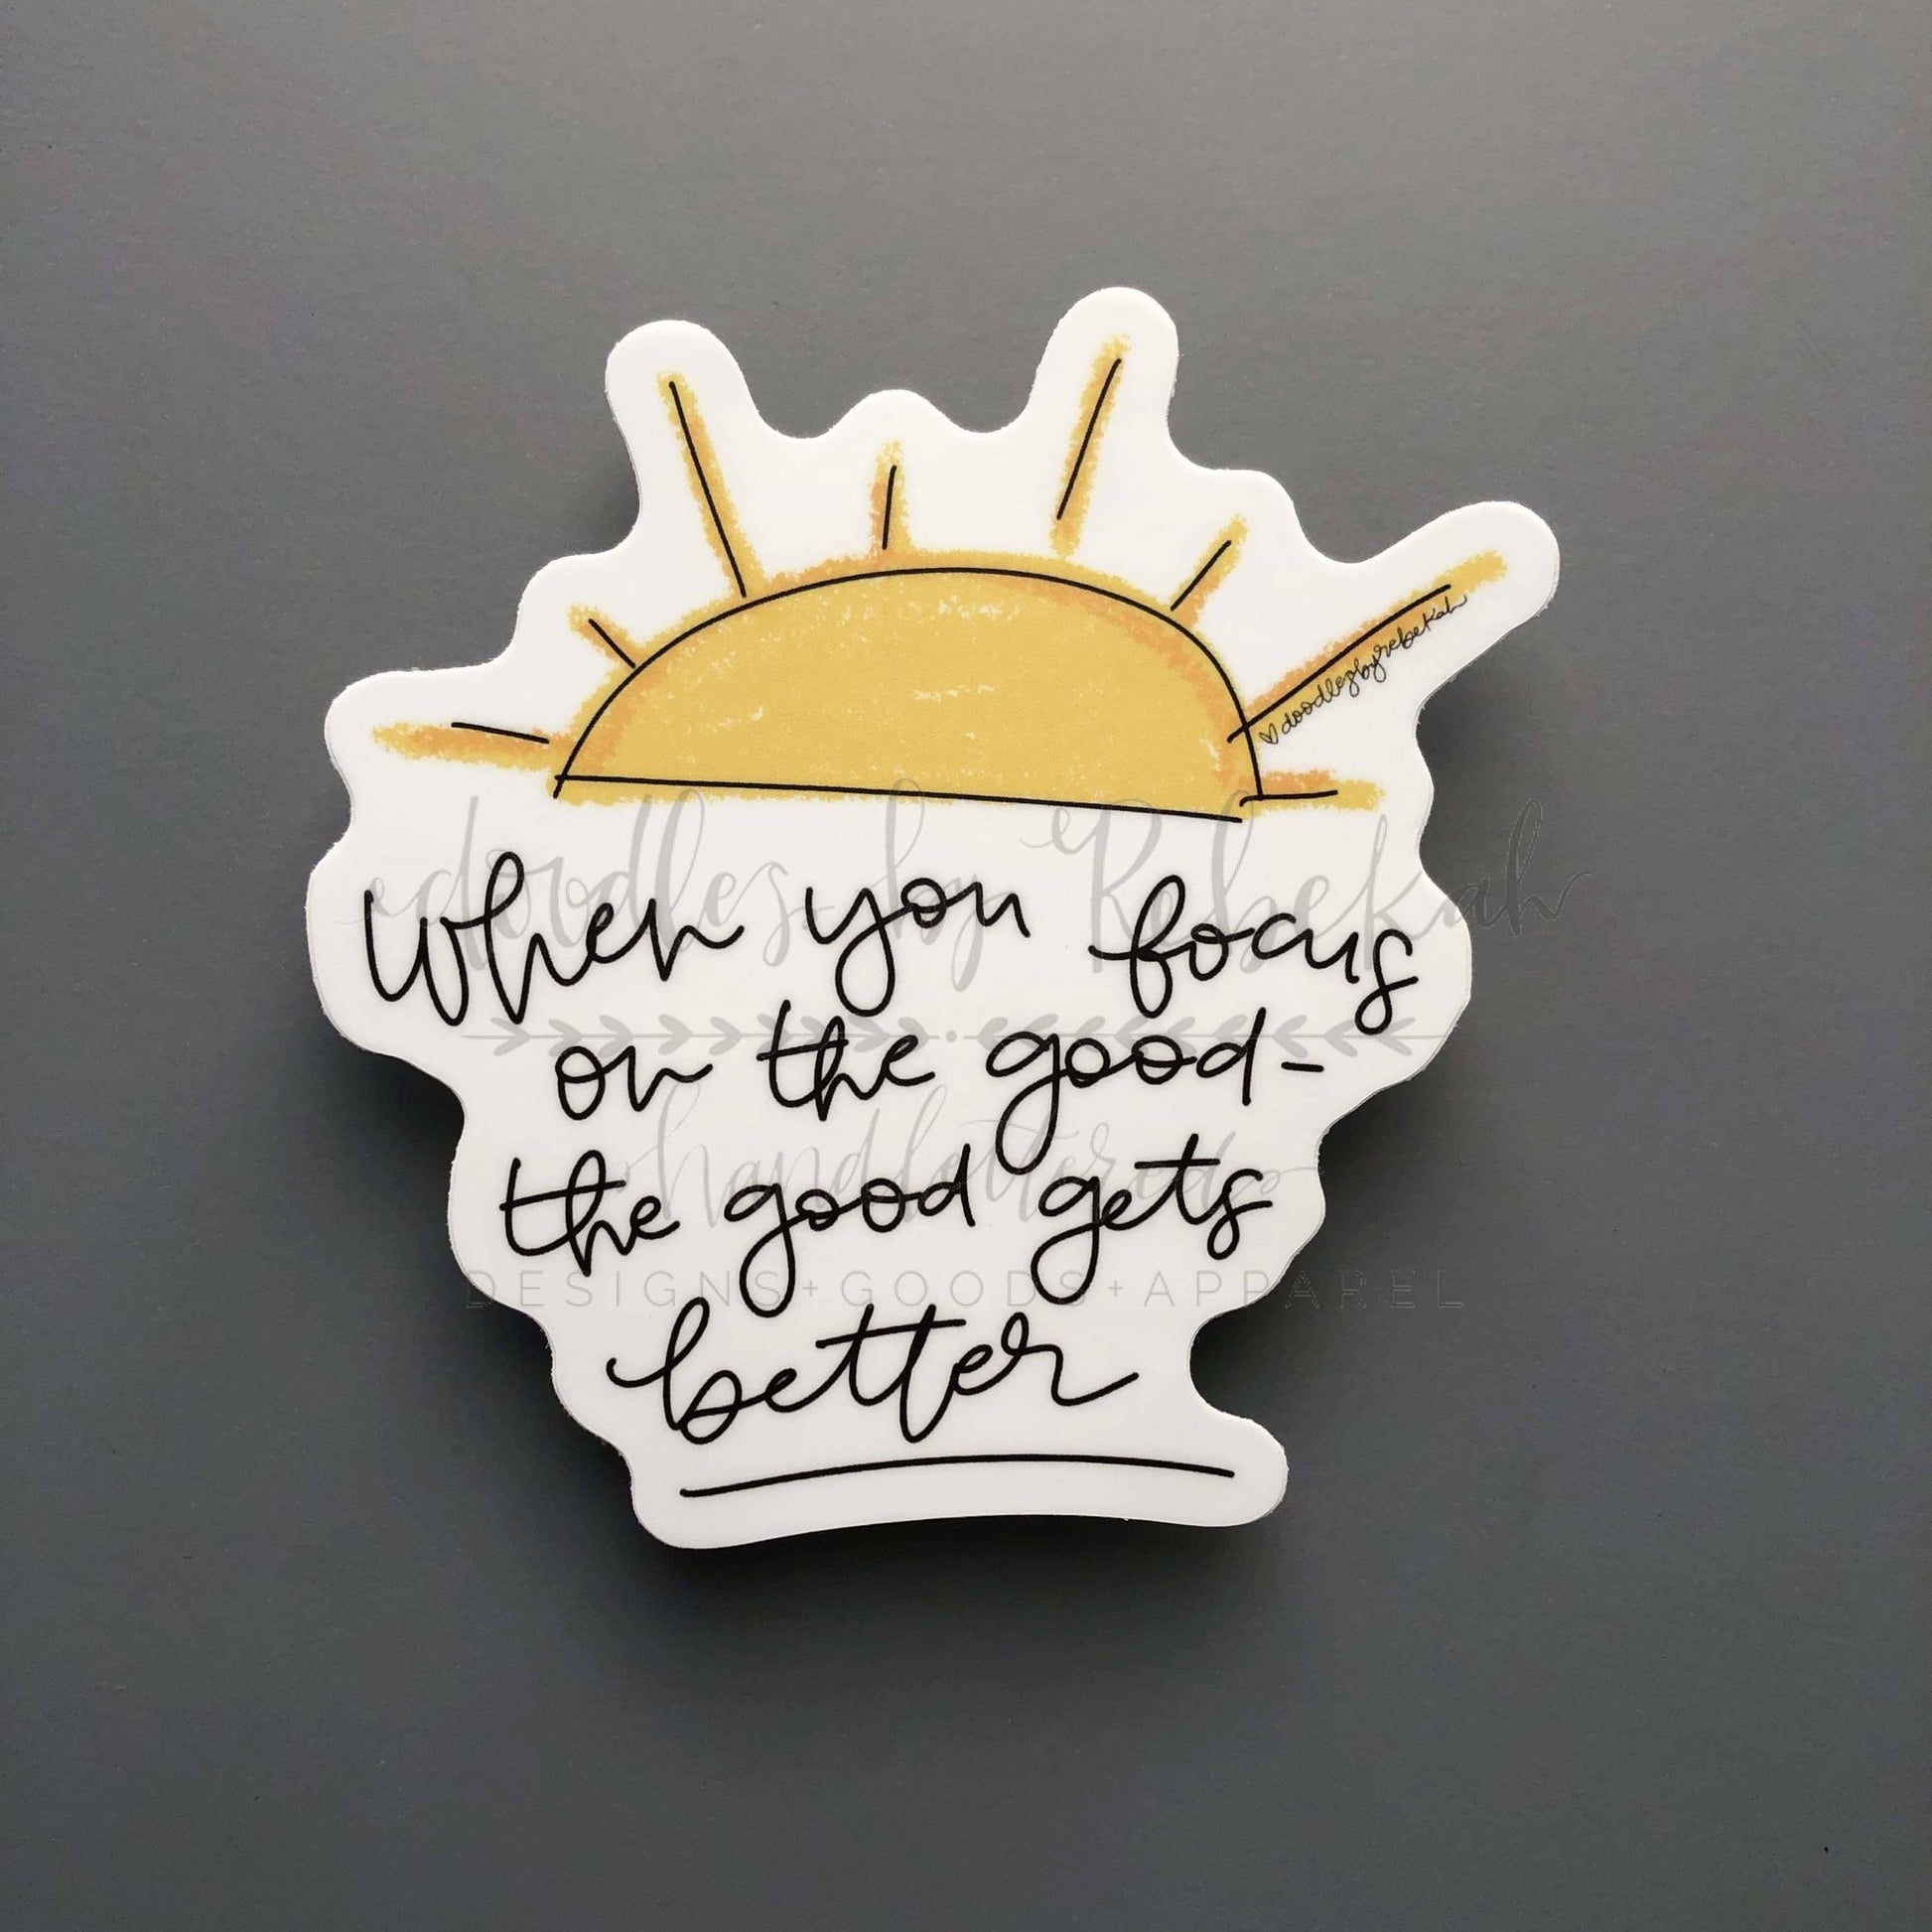 ♡doodlesbyrebekah
doodles by Rebekah
When you focus
on the good-
the good gets
handlettered
DESIGNS+GOODS+APPAREL
better